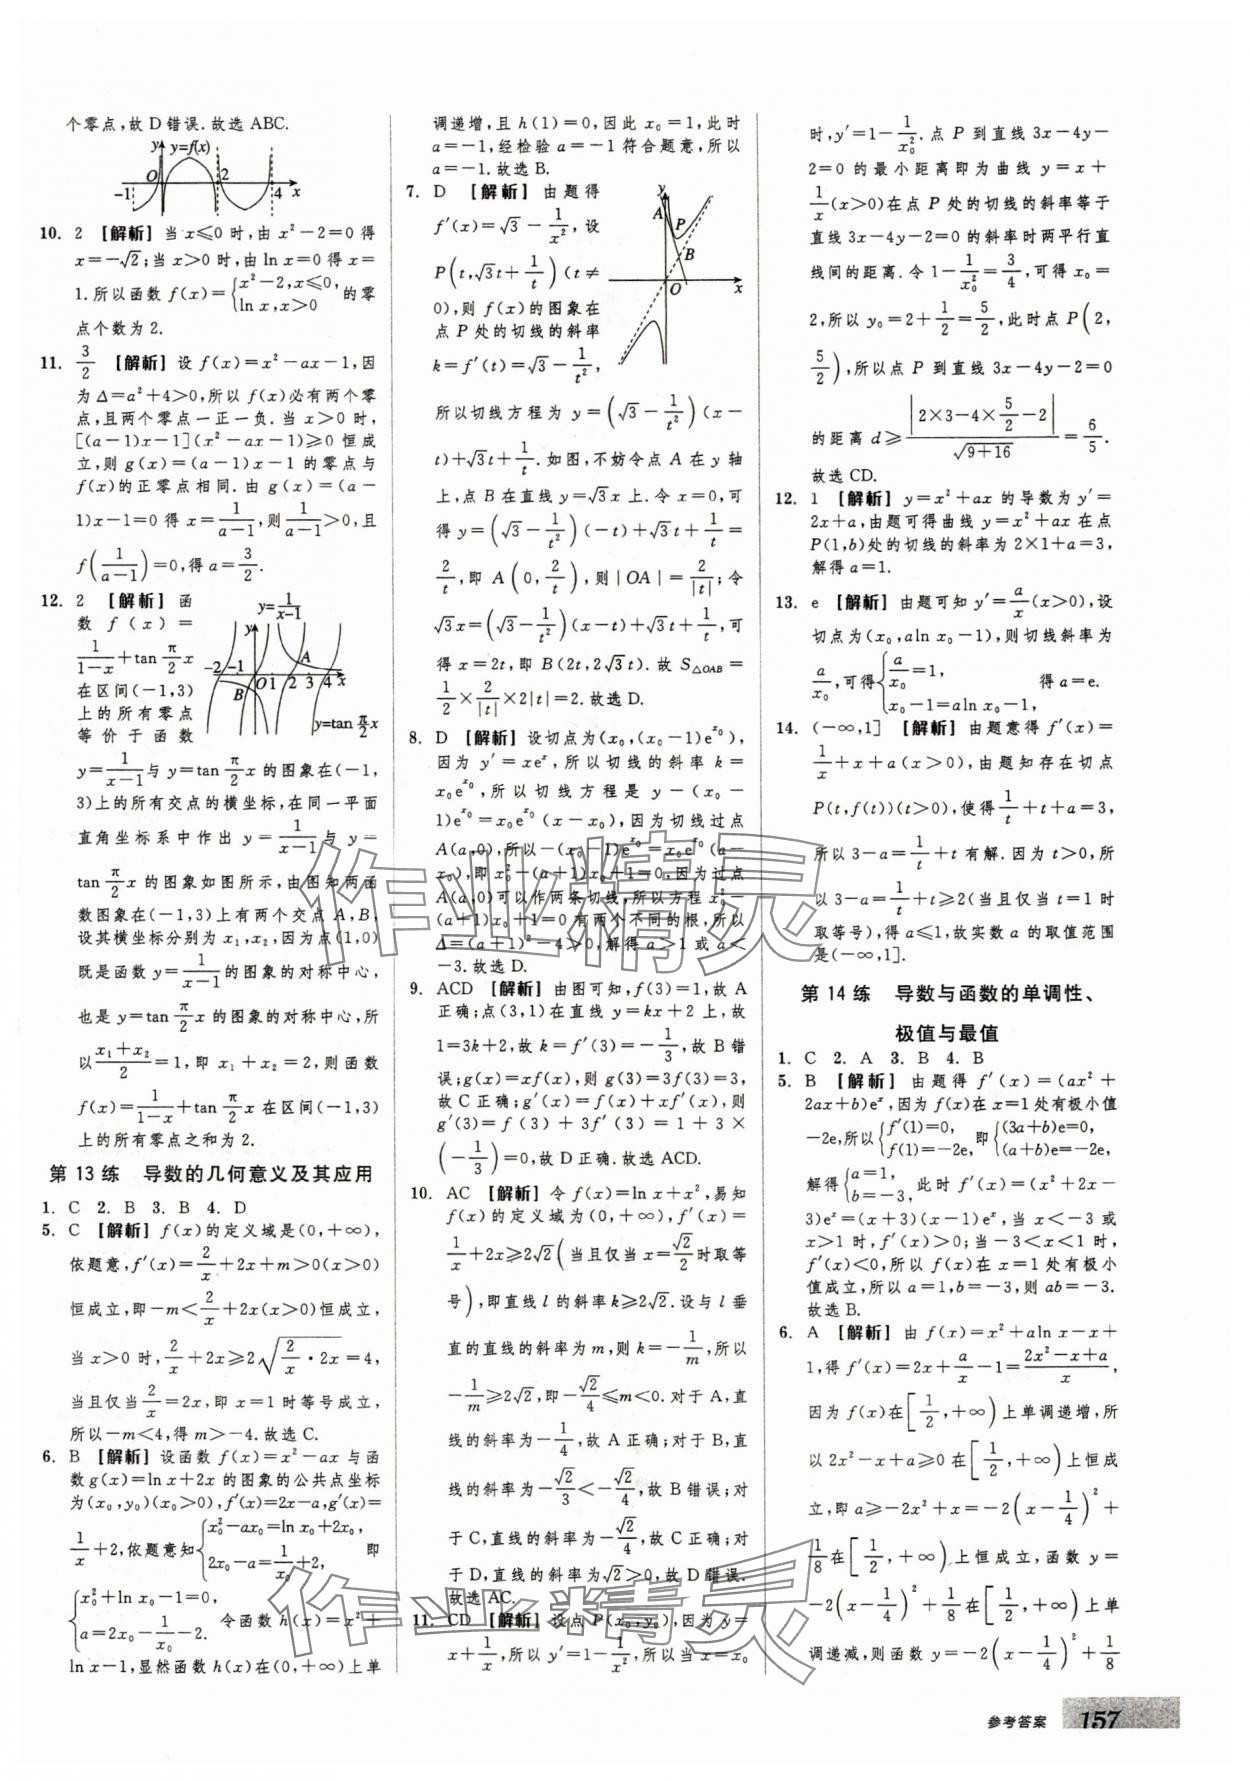 个零点,故 D 错误.故选 ABC.
y
y=f(x)
-1 O 2 4 x
10. 2 【解析】当 x≤0 时,由 x²-2=0 得
x=-√2;当 x>0 时,由 ln x=0 得 x=
1.所以函数 f(x)={x²-2,x≤0, ln x,x>0 的零
点个数为 2.
11. 3/2 【解析】设 f(x)=x²-ax-1,因
为 Δ=a²+4>0,所以 f(x)必有两个零
点,且两个零点一正一负.当 x>0 时,
[(a-1)x-1](x²-ax-1)≥0 恒成
立,则 g(x)=(a-1)x-1 的零点与
f(x)的正零点相同.由 g(x)=(a-
1)x-1=0 得 x=1/(a-1),则1/(a-1)>0,且
f(1/(a-1))=0,得 a=3/2.
12. 2 【解析】函
数 f(x)=
1/(1-x)+tan π/2 x
在区间(-1,3)
上的所有零点
等价于函数
y=1/(x-1)
y
-2 -1 O 1 2 3 4 x
A
B
y=tan π/2 x
y=1/(x-1)与 y=tan π/2 x 的图象在(-1,
3)上的所有交点的横坐标,在同一平面
直角坐标系中作出 y=1/(x-1)与 y=
tan π/2 x 的图象如图所示,由图知两函
数图象在(-1,3)上有两个交点 A,B,
设其横坐标分别为 x₁,x₂,因为点(1,0)
既是函数 y=1/(x-1)的图象的对称中心,
也是 y=tan π/2 x 的图象的对称中心,所
以(x₁+x₂)/2=1,即 x₁+x₂=2,即函数
f(x)=1/(1-x)+tan π/2 x 在区间(-1,3)
上的所有零点之和为 2.
第 13 练 导数的几何意义及其应用
1. C 2. B 3. B 4. D
5. C 【解析】f(x)的定义域是(0,+∞),
依题意,f′(x)=2/x+2x+m>0(x>0)
恒成立,即-m<2/x+2x(x>0)恒成立,
当 x>0 时,2/x+2x≥2√(2/x·2x)=4,
当且仅当2/x=2x,即 x=1 时等号成立,
所以-m<4,得 m>-4.故选 C.
6. B 【解析】设函数 f(x)=x²-ax 与函
数 g(x)=ln x+2x 的图象的公共点坐标
为(x₀,y₀)(x₀>0),f′(x)=2x-a,g′(x)=
1/x+2,依题意知{x₀²-ax₀=ln x₀+2x₀, 2x₀-a=1/x₀+2, 即
{x₀²+ln x₀-1=0, a=2x₀-1/x₀-2. 令函数 h(x)=x²+
ln x-1,显然函数 h(x)在(0,+∞)上单
调递增,且 h(1)=0,因此 x₀=1,此时
a=-1,经检验 a=-1 符合题意,所以
a=-1.故选 B.
7. D 【解析】由题得
f′(x)=√3-1/x²,设
P(t,√3t+1/t)(t≠
0),则 f(x)的图象在
点 P 处的切线的斜率
k=f′(t)=√3-1/t²,
y
A P
B
O x
所以切线方程为 y=(√3-1/t²)(x-
t)+√3t+1/t.如图,不妨令点 A 在 y 轴
上,点 B 在直线 y=√3x 上.令 x=0,可
得 y=(√3-1/t²)(-t)+√3t+1/t=
2/t,即 A(0,2/t),则|OA|=2/|t|;令
√3x=(√3-1/t²)(x-t)+√3t+1/t,可
得 x=2t,即 B(2t,2√3t).故 S△OAB=
1/2×2/|t|×2|t|=2.故选 D.
8. D 【解析】设切点为(x₀,(x₀-1)e^x₀),
因为 y′=xeˣ,所以切线的斜率 k=
x₀e^x₀,所以切线方程是 y-(x₀-
1)e^x₀=x₀e^x₀(x-x₀),因为切线过点
A(a,0),所以-(x₀-1)e^x₀=x₀e^x₀(a-
x₀),即 x₀²-(a+1)x₀+1=0,因为过点
A(a,0)可以作两条切线,所以方程 x₀²-
(a+1)x₀+1=0 有两个不同的根,所以
Δ=(a+1)²-4>0,解得 a>1 或 a<
-3.故选 D.
9. ACD 【解析】由图可知,f(3)=1,故 A
正确;点(3,1)在直线 y=kx+2 上,故
1=3k+2,故 k=f′(3)=-1/3,故 B 错
误;g(x)=xf(x),则 g(3)=3f(3)=3,
故 C 正确;g′(x)=f(x)+xf′(x),则
g′(3)=f(3)+3f′(3)=1+3×
(-1/3)=0,故 D 正确.故选 ACD.
10. AC 【解析】令 f(x)=ln x+x²,易知
f(x)的定义域为(0,+∞),f′(x)=
1/x+2x≥2√2(当且仅当 x=√2/2时取等
号),即直线 l 的斜率 k≥2√2.设与 l 垂
直的直线的斜率为 m,则 k=-1/m,所以
-1/m≥2√2,即-√2/4≤m<0.对于 A,直
线的斜率为-1/4,故 A 正确;对于 B,直
线的斜率为-√2/3<-√2/4,故 B 错误;对
于 C,直线的斜率为-√2/4,故 C 正确;对
于 D,直线的斜率为√2>0,故 D 错误.
故选 AC.
11. CD 【解析】设点 P(x₀,y₀),因为 y=
x+1/x,所以 y′=1-1/x²,所以当 x=x₀
时,y′=1-1/x₀².点 P 到直线 3x-4y-
2=0 的最小距离即为曲线 y=x+
1/x(x>0)在点 P 处的切线的斜率等于
直线 3x-4y-2=0 的斜率时两平行直
线间的距离.令 1-1/x₀²=3/4,可得 x₀=
2,所以 y₀=2+1/2=5/2,此时点 P(2,
5/2),所以点 P 到直线 3x-4y-2=0
的距离 d≥|2×3-4×5/2-2|/√(9+16)=6/5.
故选 CD.
12. 1 【解析】y=x²+ax 的导数为 y′=
2x+a,由题可得曲线 y=x²+ax 在点
P(1,b)处的切线的斜率为 2×1+a=3,
解得 a=1.
13. e 【解析】由题可知 y′=a/x(x>0),设
切点为(x₀,aln x₀-1),则切线斜率为
a/x₀,可得{a/x₀=1, x₀-1=aln x₀-1, 得 a=e.
14. (-∞,1] 【解析】由题意得 f′(x)=
1/x+x+a(x>0),由题知存在切点
P(t,f(t))(t>0),使得1/t+t+a=3,
所以 3-a=1/t+t 有解.因为 t>0,所
以 3-a=1/t+t≥2(当且仅当 t=1 时
取等号),得 a≤1,故实数 a 的取值范围
是(-∞,1].
第 14 练 导数与函数的单调性、
极值与最值
1. C 2. A 3. B 4. B
5. B 【解析】由题得 f′(x)=(ax²+
2ax+b)eˣ,因为 f(x)在 x=1 处有极小值
-2e,所以{f′(1)=0, f(1)=-2e, 即{(3a+b)e=0, (a+b)e=-2e,
解得{a=1, b=-3, 此时 f′(x)=(x²+2x-
3)eˣ=(x+3)(x-1)eˣ,当 x<-3 或
x>1 时,f′(x)>0;当-3<x<1 时,
f′(x)<0,所以 f(x)在 x=1 处有极小
值成立,所以 a=1,b=-3,则 ab=-3.
故选 B.
6. A 【解析】由 f(x)=x²+aln x-x+
1,得 f′(x)=2x+a/x-1=(2x²-x+a)/x,
因为 f(x)在[1/2,+∞)上单调递增,所
以 2x²-x+a≥0 在[1/2,+∞)上恒成
立,即 a≥-2x²+x=-2(x-1/4)²+
1/8在[1/2,+∞)上恒成立,函数 y=
-2(x-1/4)²+1/8在[1/2,+∞)上单
调递减,则函数 y=-2(x-1/4)²+1/8
作业精灵
作业精灵
参考答案 157